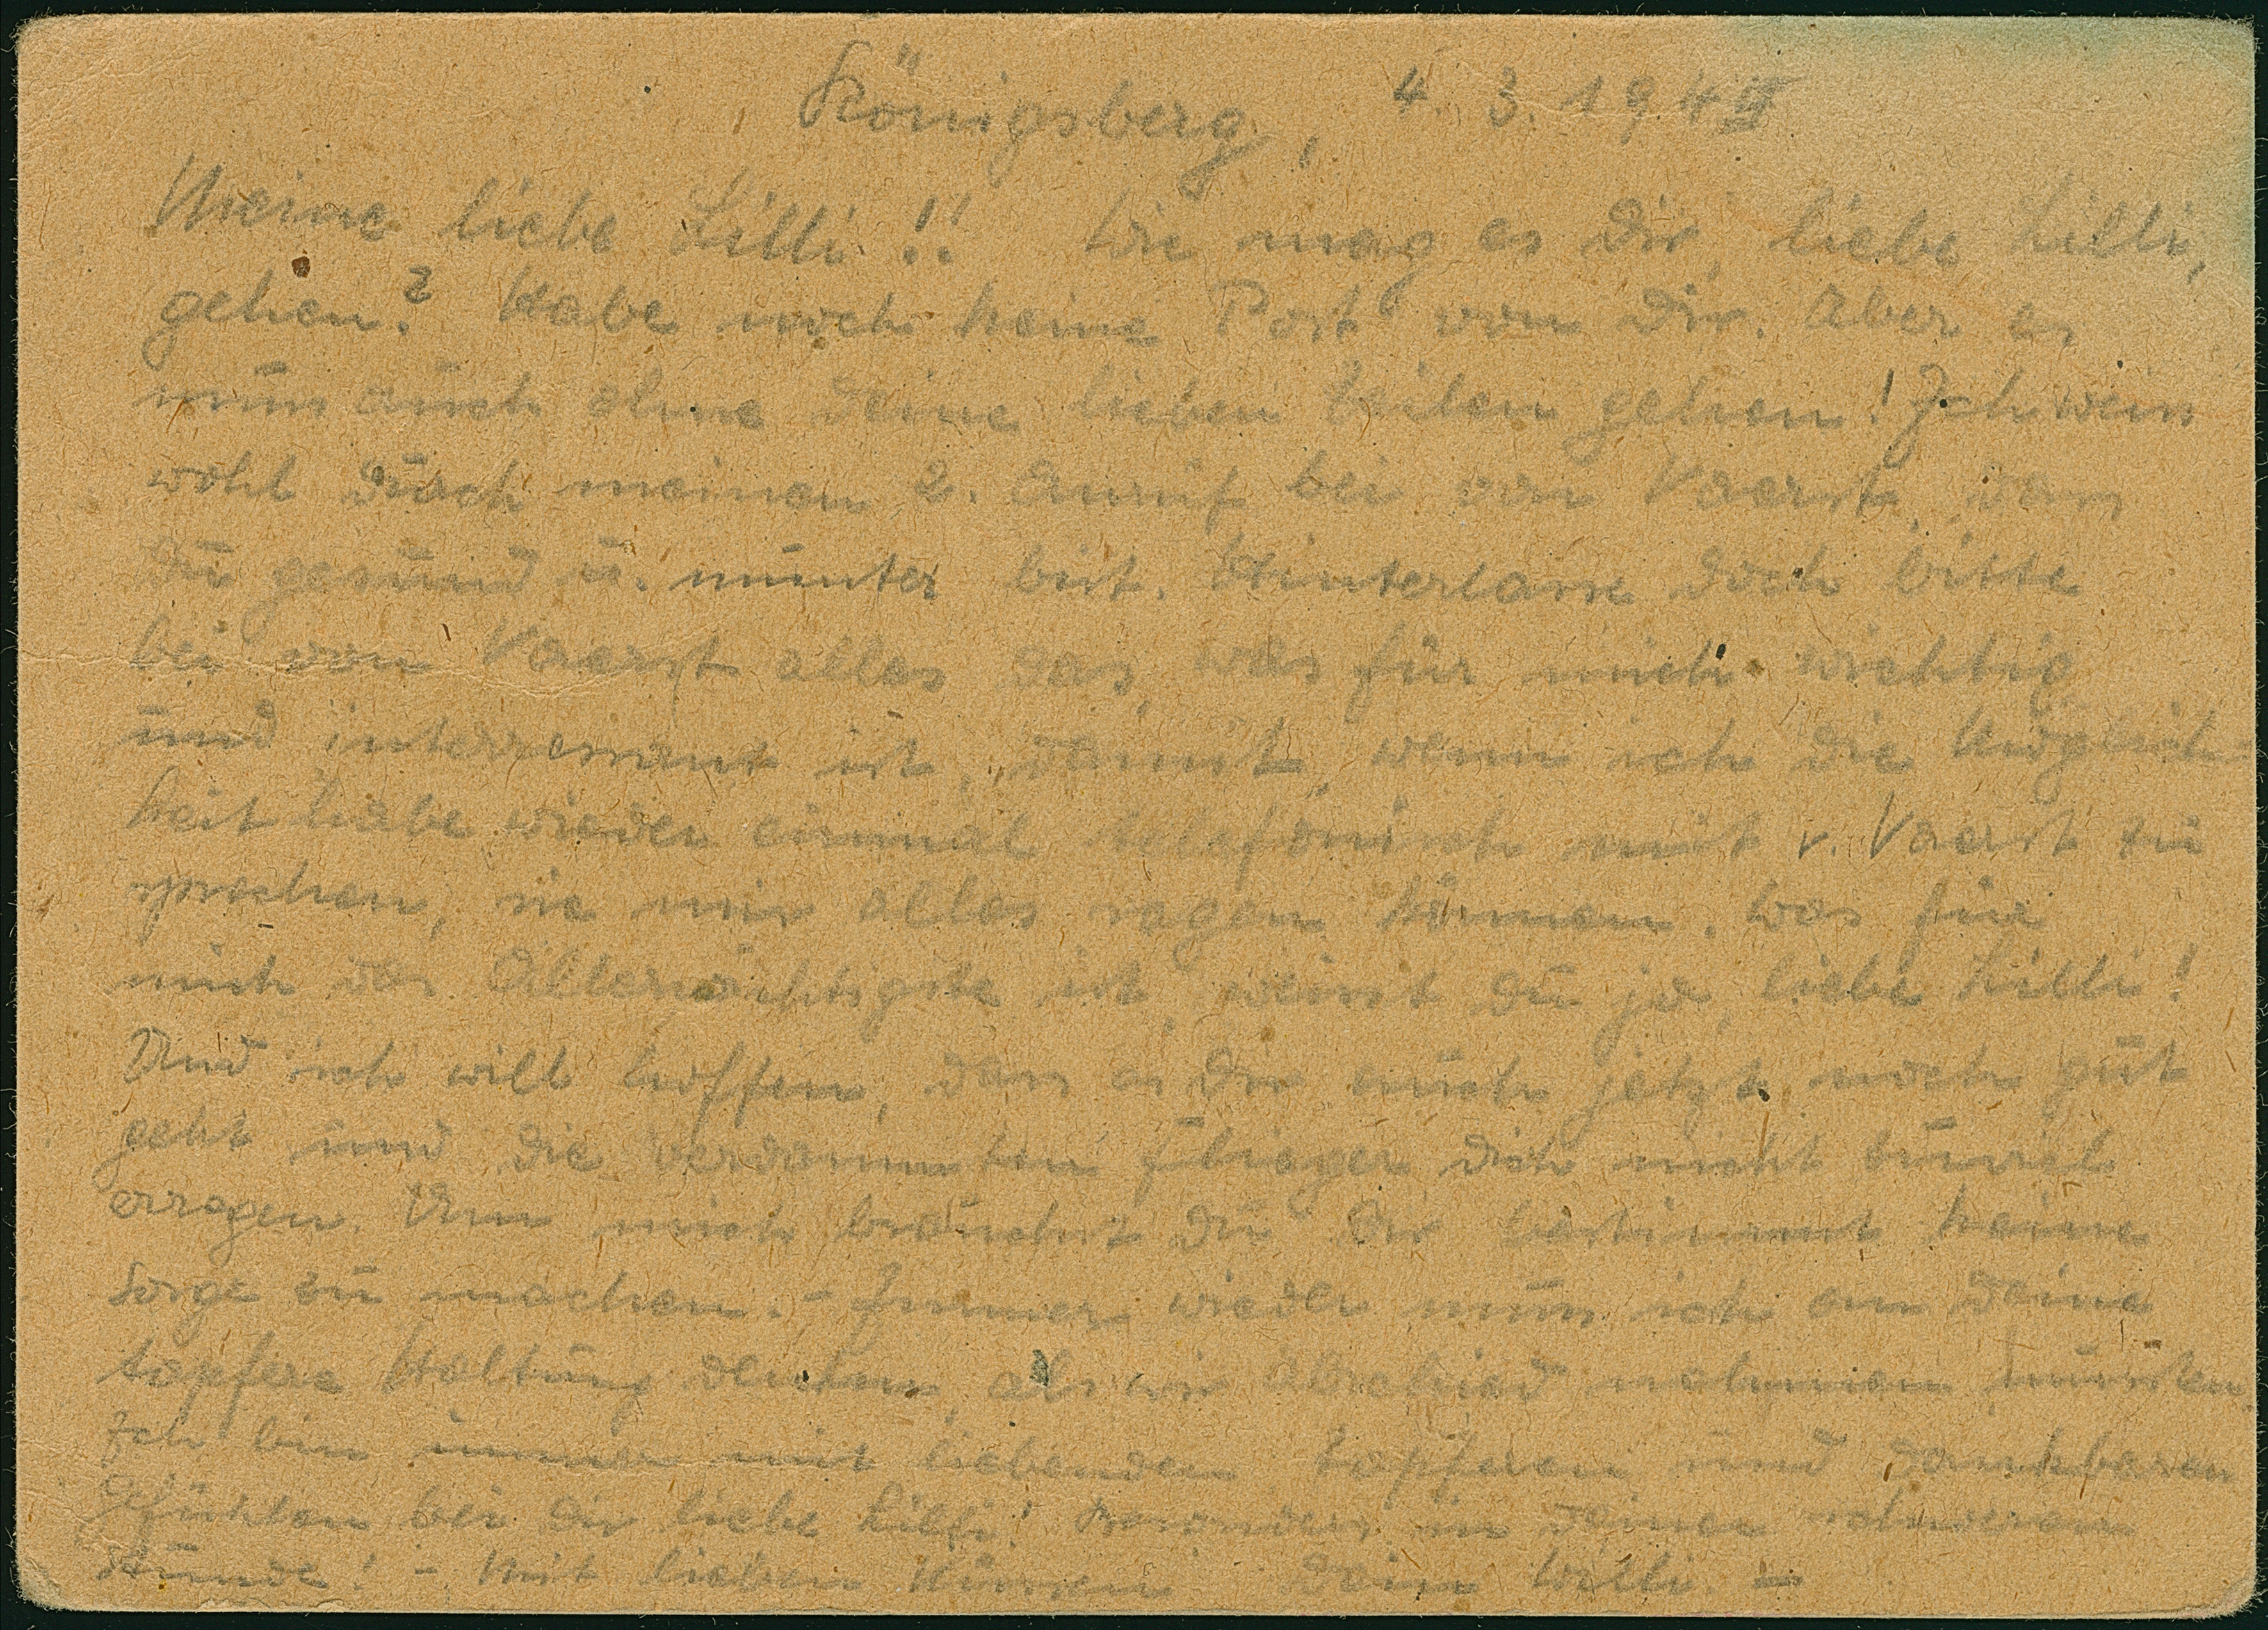 Königsberg, 4. 3. 194
Meine liebe Lilli!! Wie mag es Dir, liebe Lilli,
gehen? Habe noch keine Post von Dir. Aber es
muss auch ohne Deine lieben Zeilen gehen! Ich weiss
wohl durch meinen 2. Anruf bei von Vaerst, dass
Du gesund u. munter bist. Hinterlasse doch bitte
bei von Vaerst alles das, was für mich wichtig
und interressant ist, damit, wenn ich die Möglich-
keit habe wieder einmal telefonisch mit v. Vaerst zu
sprechen, sie mir alles sagen können. Was für
mich das Allerwichtigste ist, weisst Du ja, liebe Lilli!
Und ich will hoffen, dass es Dir auch jetzt noch gut
geht und die verdammten Flieger Dich nicht zuviel
erregen. Um mich brauchst Du Dir bestimmt keine
Sorge zu machen. - Immer wieder muss ich an Deine
tapfere Haltung denken, als wir Abschied nehmen mussten
Ich bin immer mit liebenden tapferen und dankbaren
Gefühlen bei Dir liebe Lilli! Besonders in Deiner schweren
Stunde! - Mit lieben Küssen Dein Willi. -